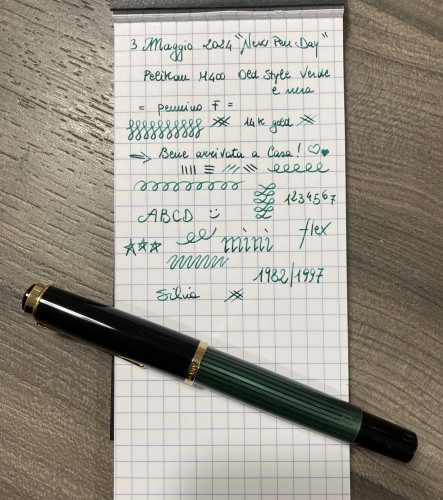 3 Maggio 2024 "New Pen Day"
Pelikan M400 Old Style Verde
e nera
= pennino F =
14K gold
Bene arrivata a Casa!
1234567
ABCD :)
mini flex
1982/1997
Silvia